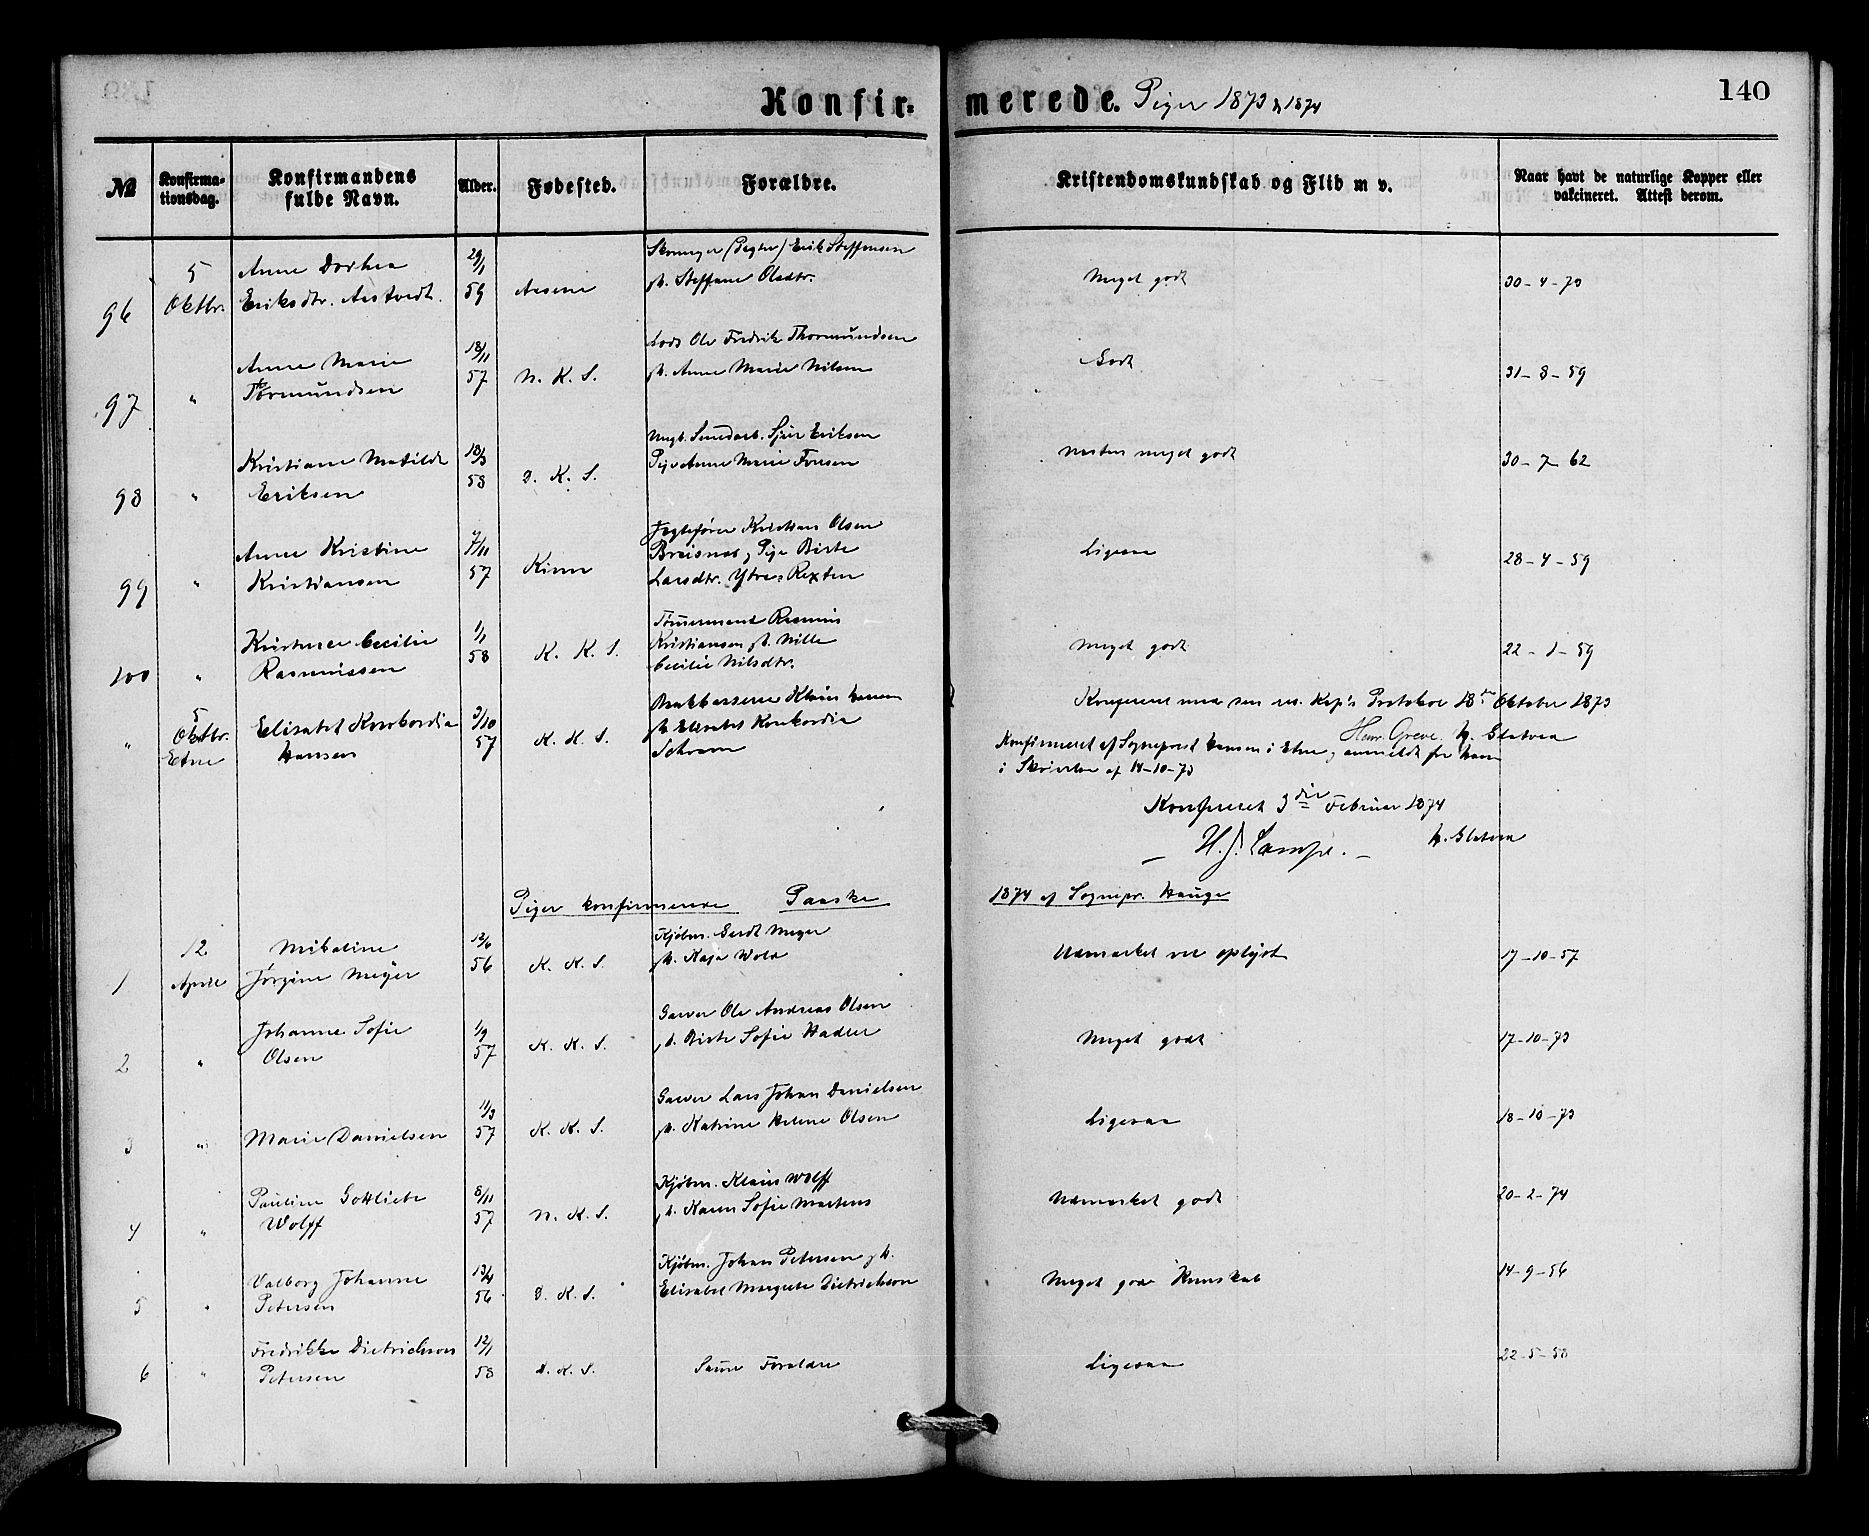 Konfirmerede. Piger 1873 & 1874
140
№
Konfirma-
tionsdag.
Konfirmandens
fulde Navn.
Alder.
Fødested.
Forældre.
Kristendomskundskab og Flid m v.
Naar havt de naturlige Kopper eller
vakcineret. Attest derom.
96 5 Oktbr.
Anne Dorthea
Eriksdtr. Aastvedt.
29/1 59
Erik Steffensen
Steffane Olsdtr.
Meget godt
30-4-73
97 "
Anne Marie
Tormundsen
18/11 57
N. K. S.
Lods Ole Fredrik Thormundsen
Anne Marie Nilsen
Godt
31-8-59
98 "
Kristiane Matilde
Eriksen
18/3 58
D. K. S.
Eriksen
Pige Anne Marie
Næsten meget godt
30-7-62
99 "
Anne Kristine
Kristiansen
7/11 57
Kinn
Jegtefører Kristian Olsen
Pige Birte
Larsdtr. Ytre-Rexten
Ligesaa
28-4-59
100 "
Cecilie
Rasmussen
1/1 58
K. K. S.
Tømmermand Rasmus
Kristiansen Nille
Cecilie Nilsdtr.
Meget godt
22-1-59
Konfereret med den res. Kap's Protokol 18de Oktober 1873
Henr. Greve.
" 5 Oktbr. Etne
Elisabet Konkordia
Hansen
3/10 57
K. K. S.
Klaus Hansen
Elisabet Konkordia
Schram
Konfirmeret af Sognepræst Hansen i Etne, anmeldt for ham
i Skrivelse af 14-10-73
Konfereret 3die Februar 1874
Piger konfirmerede Paaske 1874 af Sognepr. Hauge
1 12 April
Mikaline
Jørgine Meyer
12/6 56
K. K. S.
Kjøbm. Gerdt Meyer
Kaja Wold
Udmærket vel oplyst
17-10-57
2 "
Johanne Sofie
Olsen
1/9 57
K. K. S.
Garver Ole Andreas Olsen
Birte Sofie
Meget godt
17-10-73
3 "
Marie Danielsen
11/3 57
K. K. S.
Garver Lars Johan Danielsen
Katrine Helene Olsen
Ligesaa
18-10-73
4 "
Pauline Gottliebe
Wolff
8/11 57
N. K. S.
Kjøbm. Klaus Wolff
Karen Sofie Martens
Udmærket godt
20-2-74
5 "
Valborg Johanne
Petersen
13/4 56
D. K. S.
Kjøbm. Johan Petersen
Elisabet Margrete Dietrichson
Meget god Kundskab
14-9-56
6 "
Fredrikke Dietrichson
Petersen
12/1 58
D. K. S.
Samme Forældre
Ligesaa
22-5-58